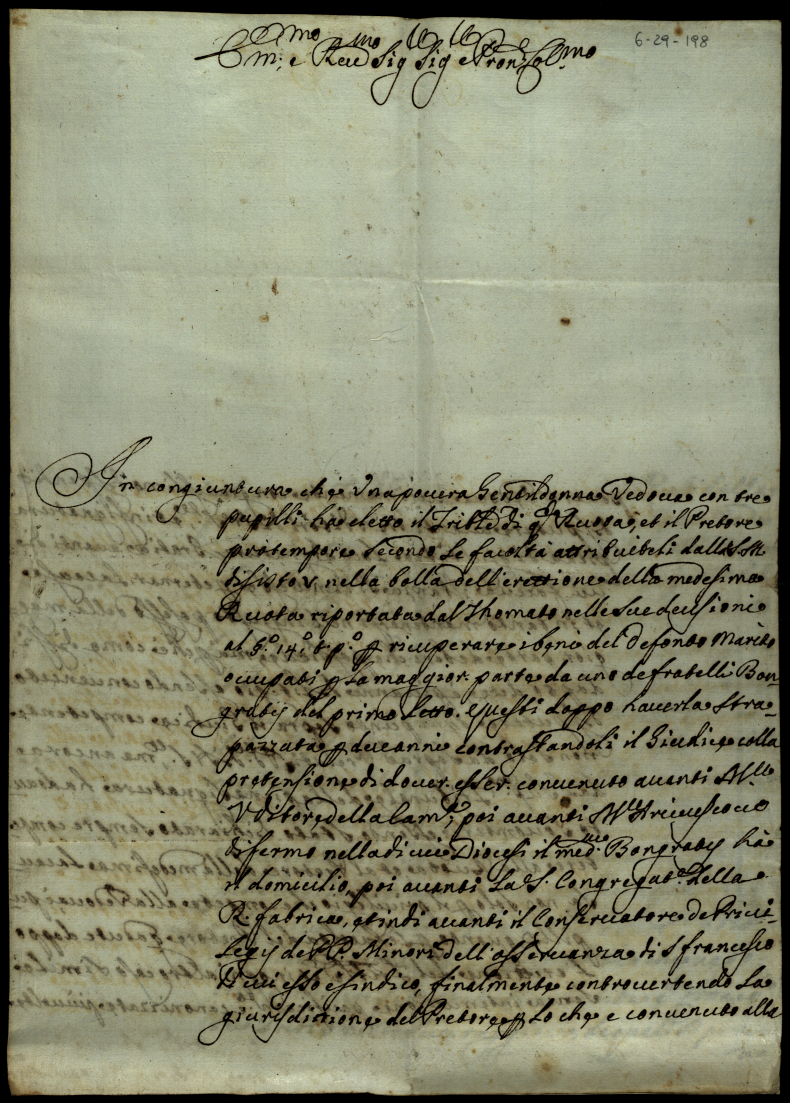 6-29-198
Em.mo e Reu.mo Sig.re Sig.re e Pron.e Col.mo
In congiuntura che una pouera Gentildonna Vedoua con tre
pupilli hà eletto il Trib.le di q.ta Ruota, et il Pretore
protempore secondo le facoltà attribuiteli dalla S. M.
di Sisto V. nella bolla dell'erettione della medesima
Ruota riportata dal Thomato nelle sue decisioni
al 5.º 14.º t. p.º p ricuperare i beni del defonto Marito
occupati p la maggior parte da uno de fratelli Bon-
gratij del primo letto. Questi doppo hauerla stra-
pazzata p due anni contrastandoli il Giudice colla
pretensione di douer esser conuenuto auanti M.r
Vditore della Cam.a, poi auanti M.r Arciuescouo
di fermo nella di cui Diocesi il med.mo Bongratij hà
il domicilio, poi auanti la S. Congregat.e della
R. fabrica, et indi auanti il Conseruatore de Priui-
legij de PP. Minori dell'osseruanza di S francesco
di cui esso è sindico, finalmente controuertendo la
giurisdittione del Pretore p lo che è conuenuto alla